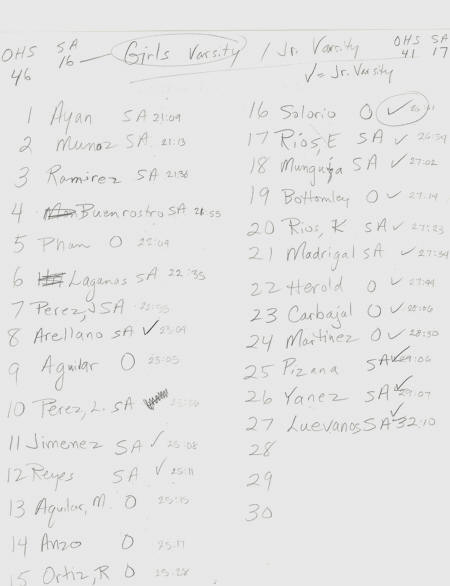 OHS SA Girls Varsity / Jr. Varsity OHS SA
46 16 41 17
✓= Jr. Varsity
1 Ayan SA 21:09
2 Munoz SA 21:13
3 Ramirez SA 21:36
4 Buenrostro SA 21:55
5 Phan O 22:09
6 Lagunas SA 22:35
7 Perez, J SA 22:55
8 Arellano SA ✓ 23:04
9 Aguilar O
10 Perez, L. SA
11 Jimenez SA ✓ 25:08
12 Reyes SA ✓ 25:11
13 Aguilar, M. O 25:15
14 Anzo O 25:17
15 Ortiz, R O 25:28
16 Solorio O ✓
17 Rios, E SA ✓ 26:54
18 Munguia SA ✓ 27:02
19 Bottomley O ✓ 27:19
20 Rios, K SA ✓ 27:23
21 Madrigal SA ✓ 27:34
22 Herold O ✓ 27:49
23 Carbajal O ✓ 28:06
24 Martinez O ✓ 28:30
25 Pizana SA ✓ 29:06
26 Yanez SA ✓ 29:07
27 Luevanos SA ✓ 32:10
28
29
30